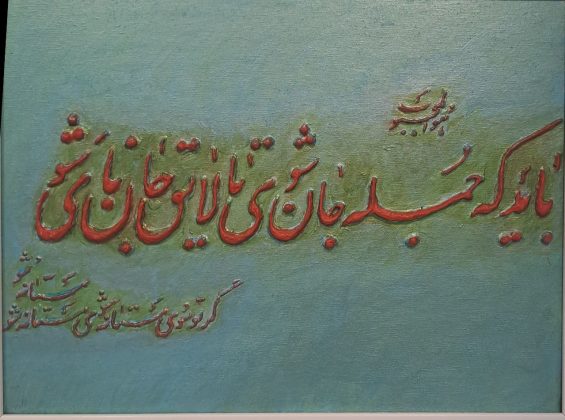 هوالمحبوب
باید که جمله جان شوی تا لایق جانان شوی
گر تو سوی مستان شوی مستانه شو
مستانه شو